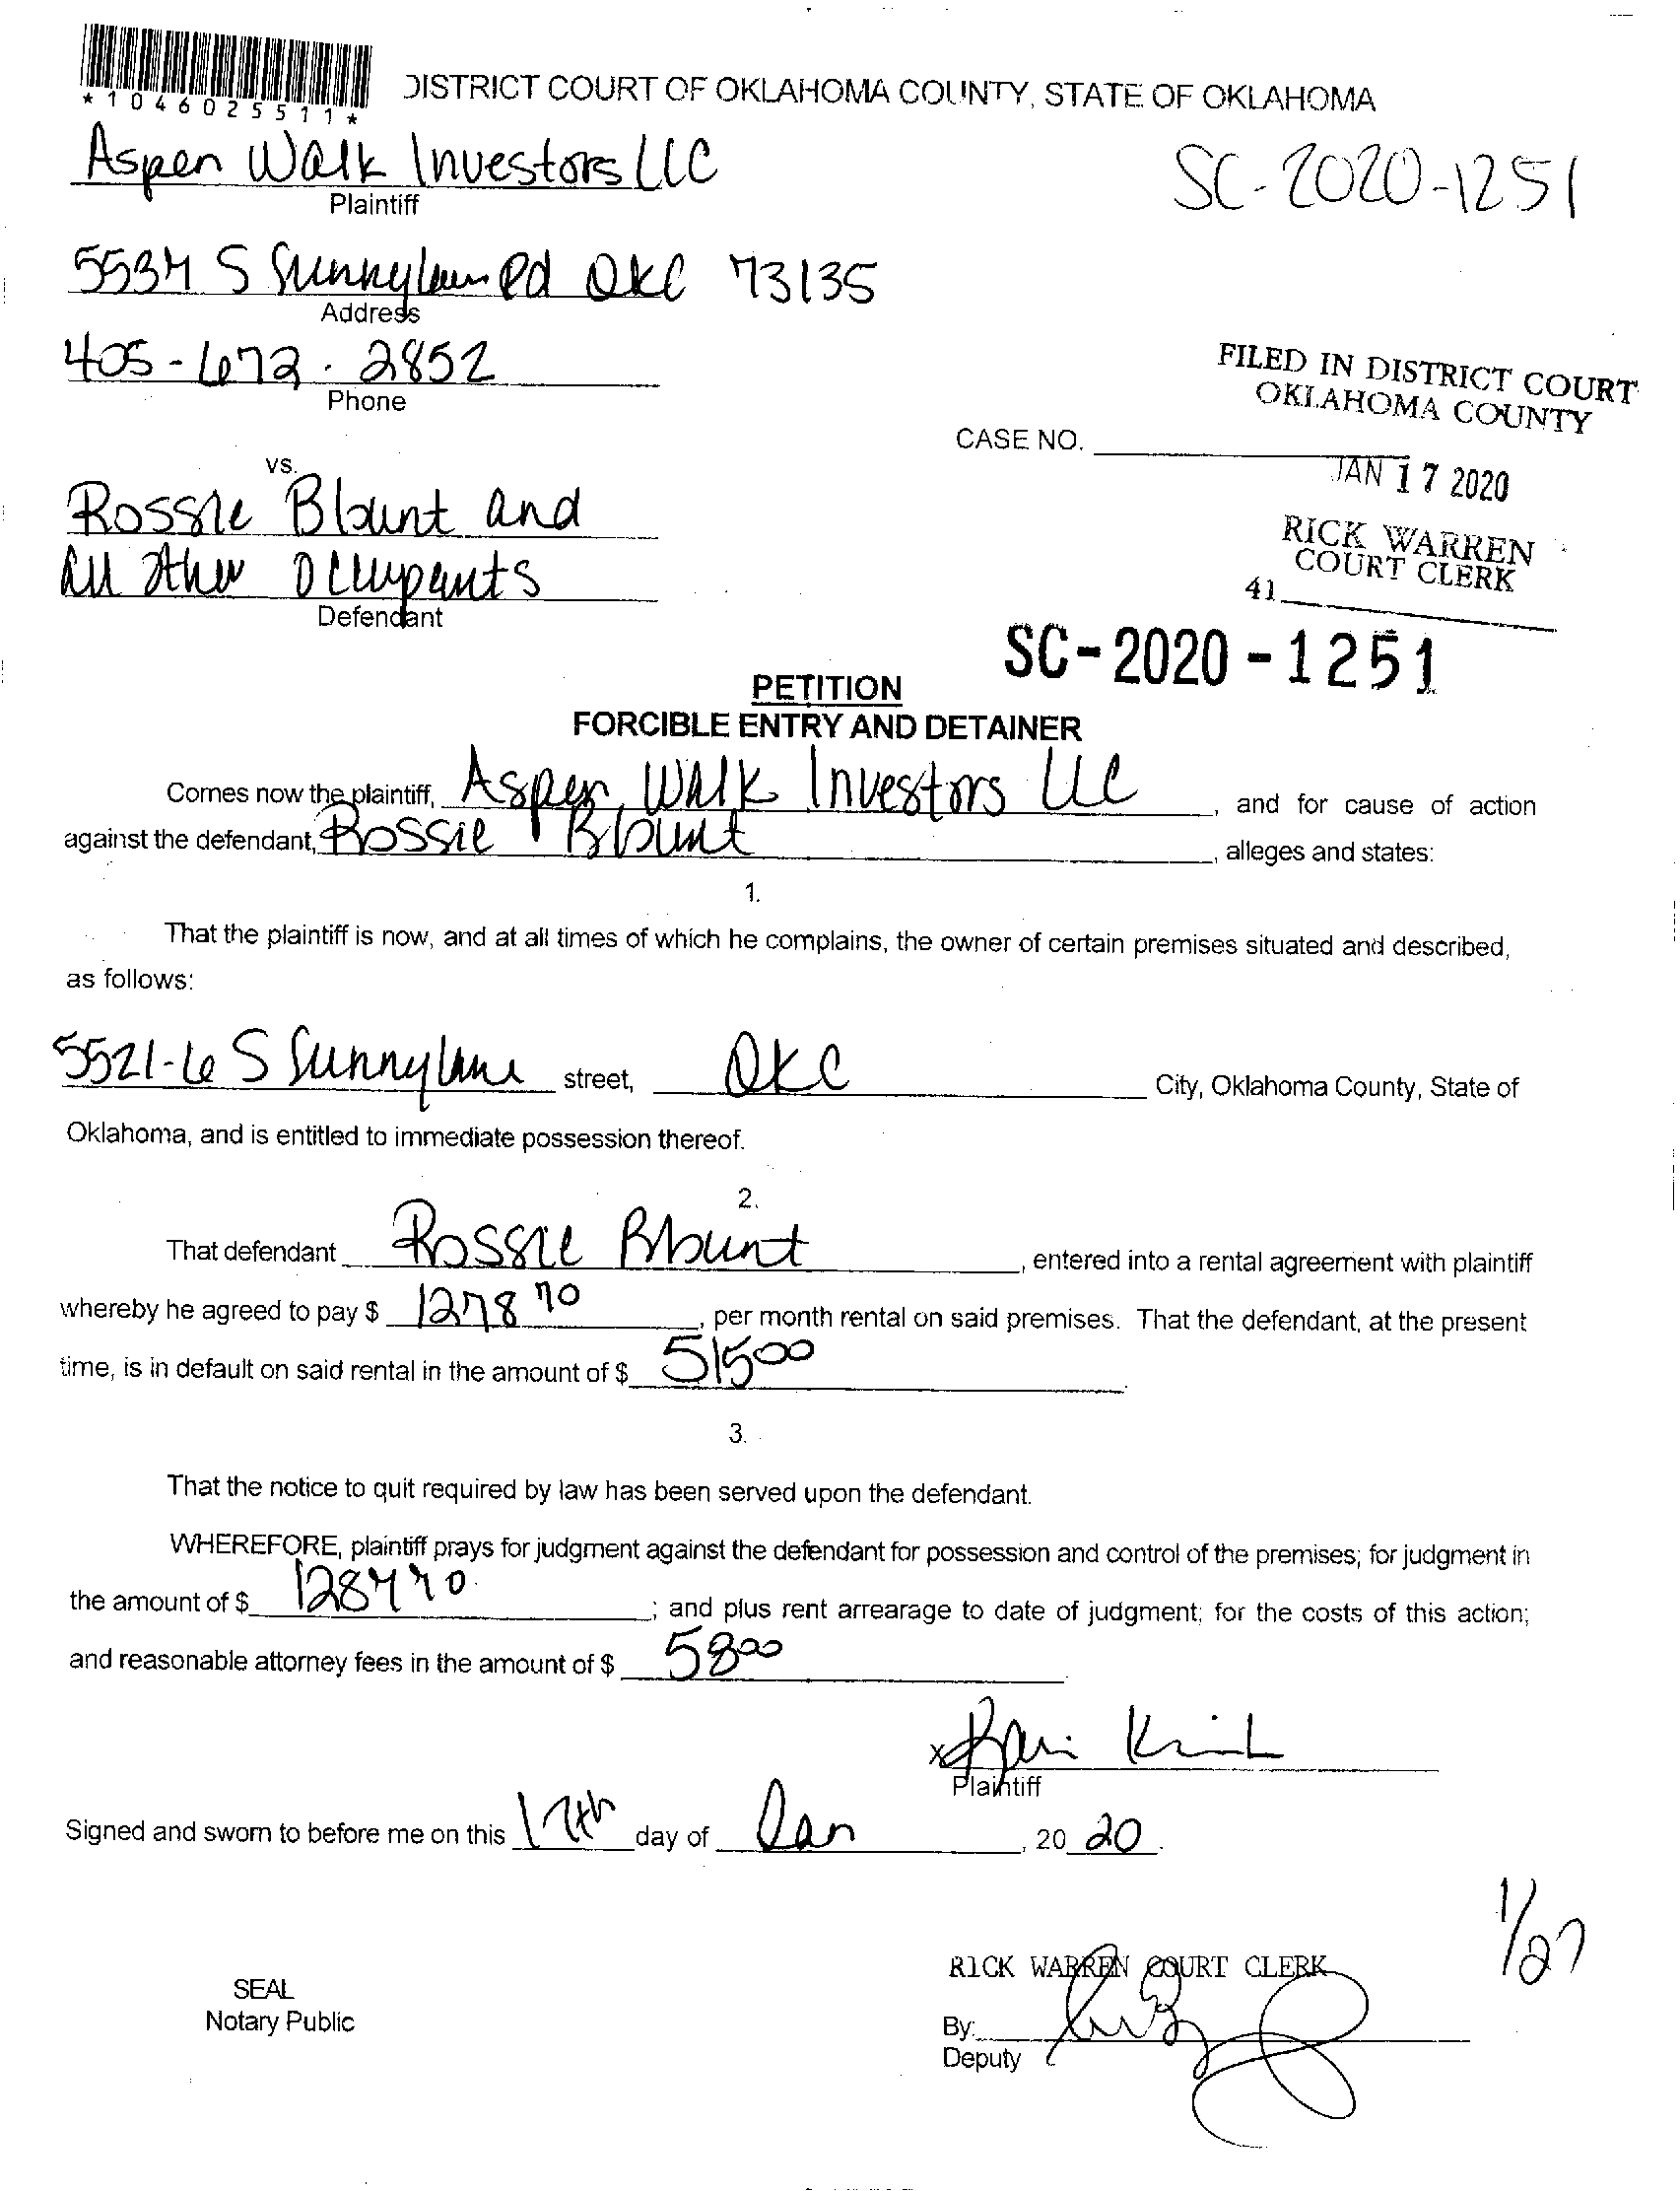 *1046025511*
DISTRICT COURT OF OKLAHOMA COUNTY, STATE OF OKLAHOMA
Aspen Walk Investors LLC
Plaintiff
SC-2020-1251
5534 S Sunnylane Rd OKC 73135
Address
405-672-2852
Phone
FILED IN DISTRICT COURT
OKLAHOMA COUNTY
CASE NO.
JAN 17 2020
vs.
Rossie Blount and
All Other Occupants
Defendant
RICK WARREN
COURT CLERK
41
SC-2020-1251
PETITION
FORCIBLE ENTRY AND DETAINER
Comes now the plaintiff, Aspen Walk Investors LLC, and for cause of action
against the defendant, Rossie Blount, alleges and states:
1.
That the plaintiff is now, and at all times of which he complains, the owner of certain premises situated and described,
as follows:
5521-6 S Sunnylane street, OKC City, Oklahoma County, State of
Oklahoma, and is entitled to immediate possession thereof.
2.
That defendant Rossie Blount, entered into a rental agreement with plaintiff
whereby he agreed to pay $ 1278 70, per month rental on said premises. That the defendant, at the present
time, is in default on said rental in the amount of $ 515 00.
3.
That the notice to quit required by law has been served upon the defendant.
WHEREFORE, plaintiff prays for judgment against the defendant for possession and control of the premises; for judgment in
the amount of $ ; and plus rent arrearage to date of judgment; for the costs of this action;
and reasonable attorney fees in the amount of $ 58 00
x
Plaintiff
Signed and sworn to before me on this 17th day of Jan, 20 20.
1/27
RICK WARREN COURT CLERK
SEAL
Notary Public
By:
Deputy